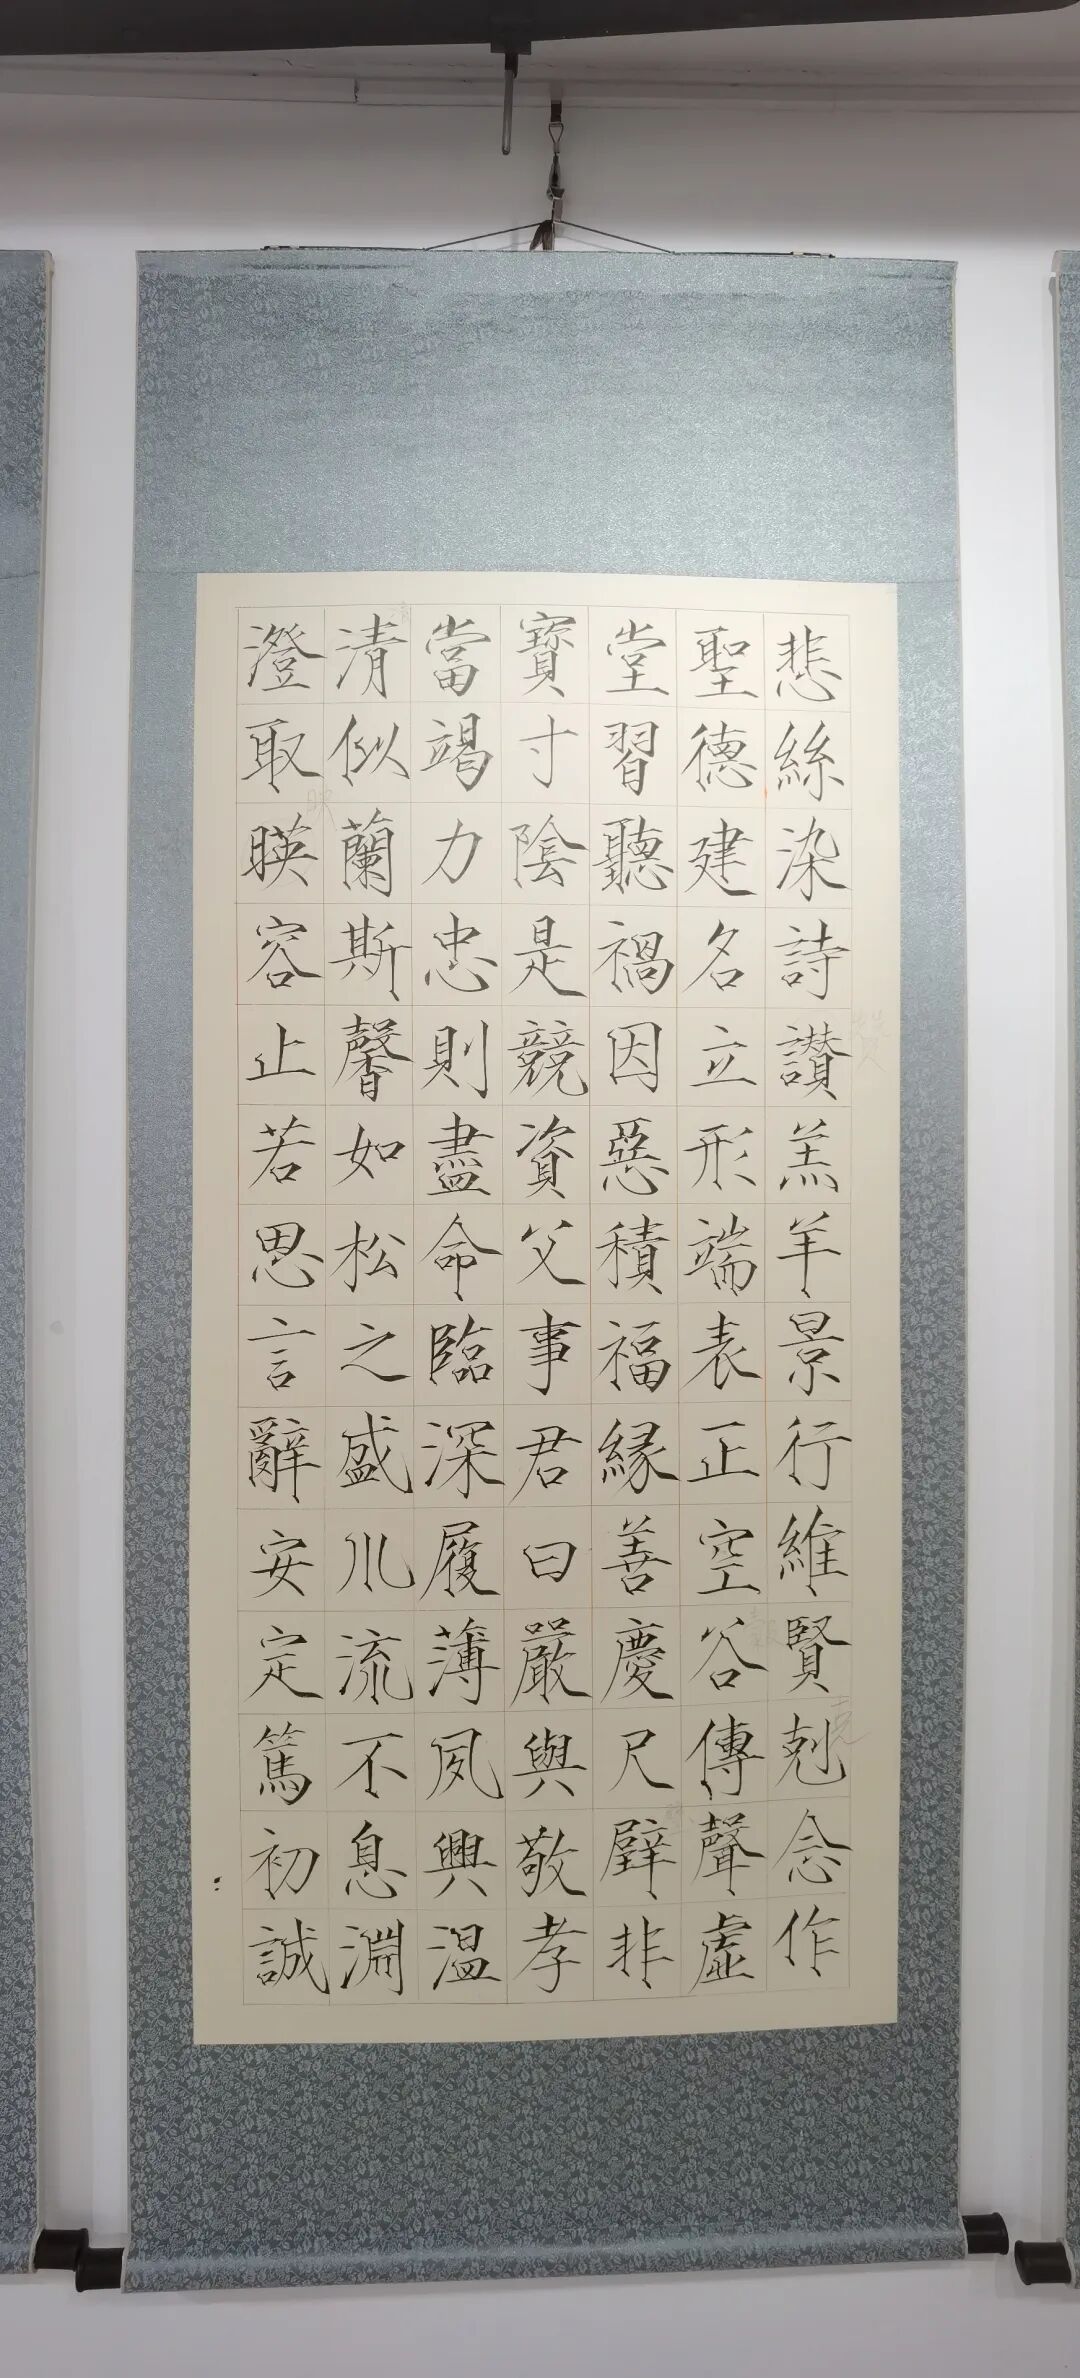 悲絲染詩讃羔羊景行維賢剋念作
聖德建名立形端表正空谷傳聲虛
堂習聽禍因惡積福緣善慶尺璧非
寶寸陰是競資父事君曰嚴與敬孝
當竭力忠則盡命臨深履薄夙興温
清似蘭斯馨如松之盛川流不息淵
澄取暎容止若思言辭安定篤初誠